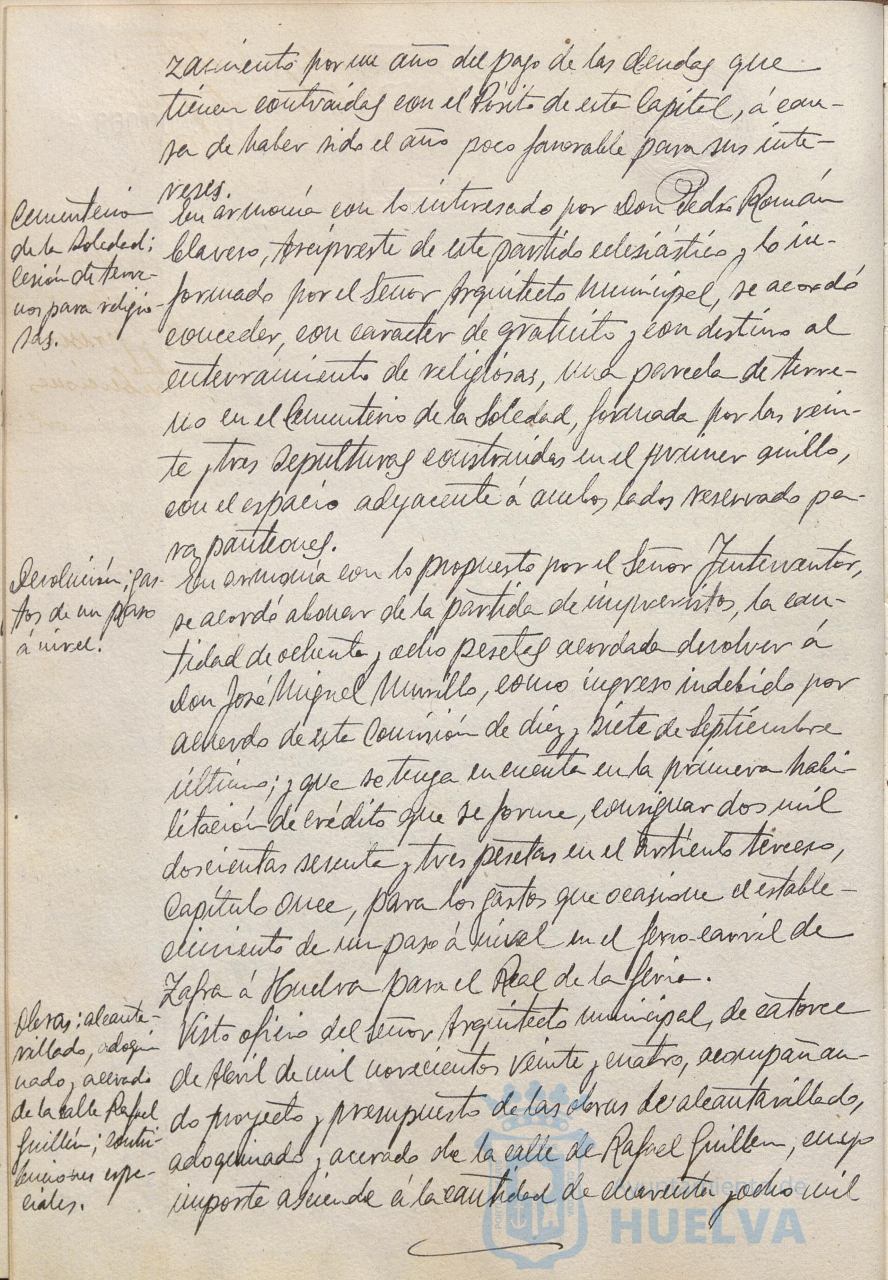 zamiento por un año del pago de las deudas que
tienen contraidas con el Pósito de esta Capital, á cau-
sa de haber sido el año poco favorable para sus inte-
reses.
Cementerio
de la Soledad;
cesión de terre-
nos para religio-
sas.
En armonía con lo interesado por Don Pedro Román
Clavero, Arcipreste de este partido eclesiástico y lo in-
formado por el Señor Arquitecto Municipal, se acordó
conceder, con carácter de gratuito y con destino al
enterramiento de religiosas, una parcela de terre-
no en el Cementerio de la Soledad, formada por las vein-
te y tres sepulturas construidas en el primer anillo,
con el espacio adyacente á ambos lados reservado pa-
ra panteones.
Devolución; gas-
tos de un paso
á nivel.
En armonía con lo propuesto por el Señor Interventor,
se acordó abonar de la partida de imprevistos, la can-
tidad de ochenta y ocho pesetas acordada devolver á
Don José Miguel Murillo, como ingreso indebido por
acuerdo de esta Comisión de diez y siete de Septiembre
último; y que se tenga en cuenta en la primera habi-
litación de crédito que se forme, consignar dos mil
doscientas sesenta y tres pesetas en el Artículo tercero,
Capítulo once, para los gastos que ocasione el estable-
cimiento de un paso á nivel en el ferro-carril de
Zafra á Huelva para el Real de la Feria.
Obras; alcanta-
rillado, adoqui-
nado y acerado
de la calle Rafael
Guillén; contri-
buciones espe-
ciales.
Visto oficio del señor Arquitecto municipal, de catorce
de Abril de mil novecientos veinte y cuatro, acompañan-
do proyecto y presupuesto de las obras de alcantarillado,
adoquinado y acerado de la calle de Rafael Guillen, cuyo
importe asciende á la cantidad de cuarenta y ocho mil
Ayuntamiento de
HUELVA